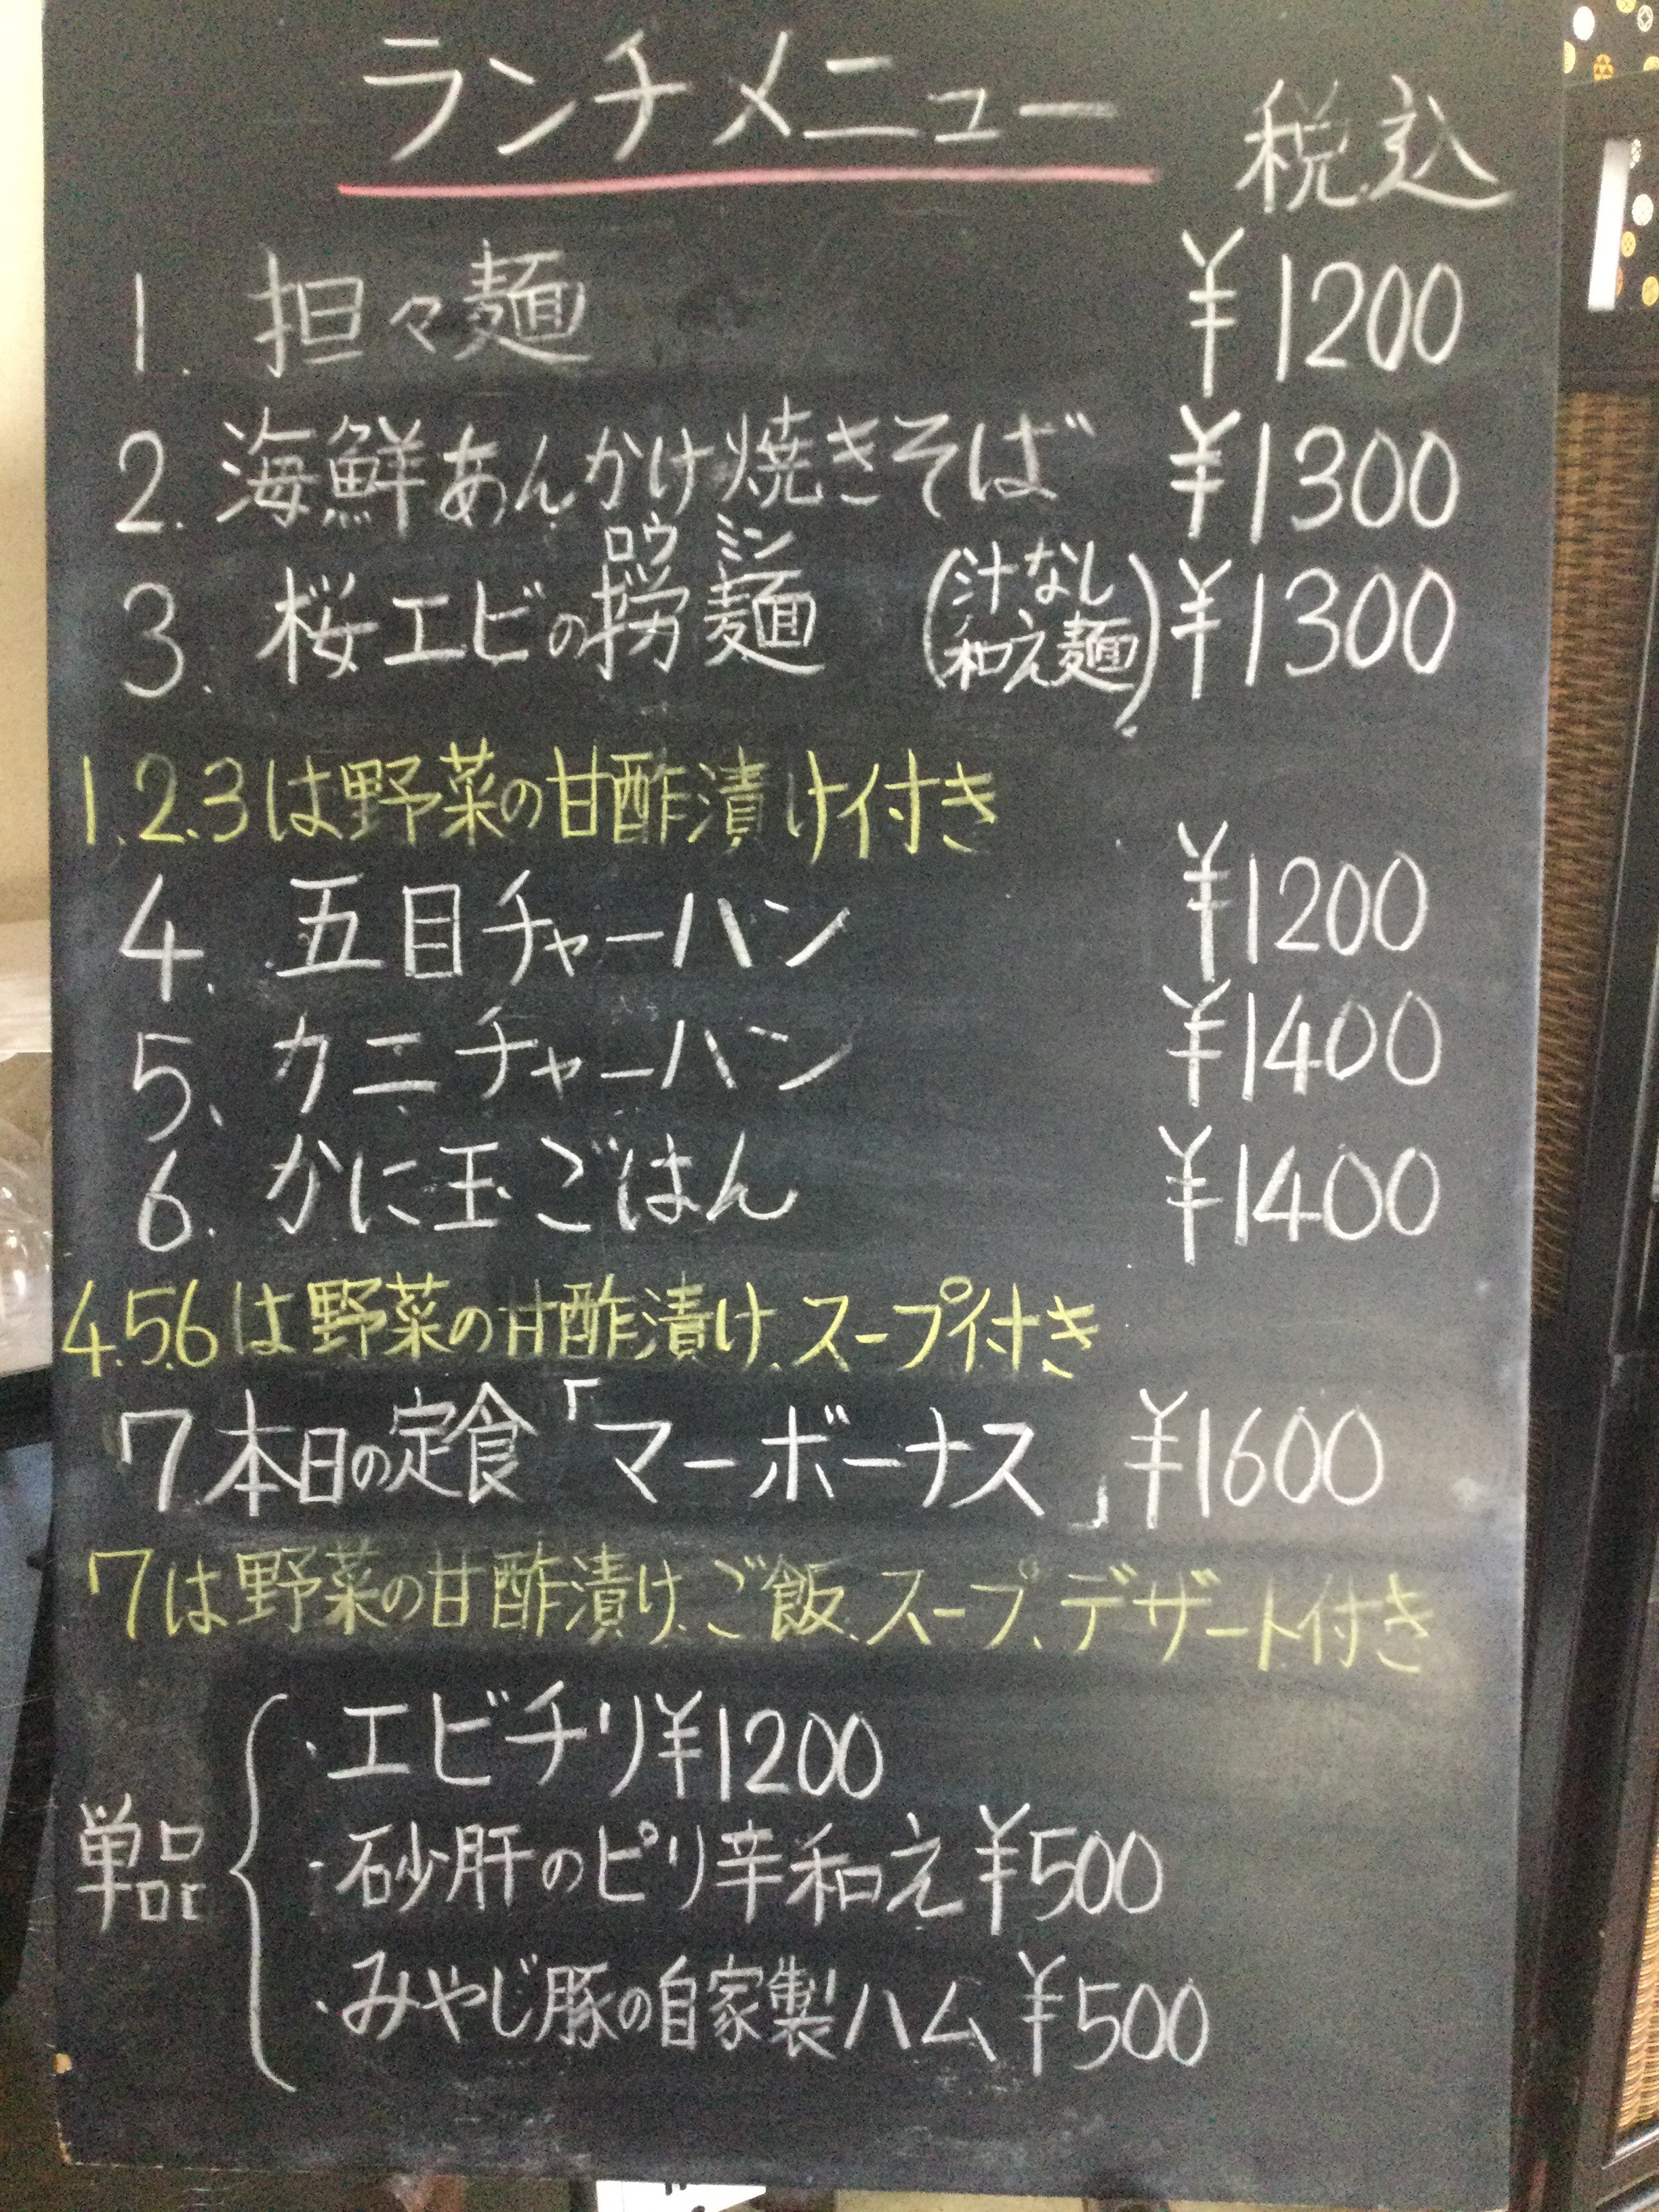 ランチメニュー 税込
1. 担々麺 ¥1200
2. 海鮮あんかけ焼きそば ¥1300
ロウ ミン
3. 桜エビの撈麺 (汁なし和え麺) ¥1300
1.2.3は野菜の甘酢漬け付き
4. 五目チャーハン ¥1200
5. カニチャーハン ¥1400
6. かに玉ごはん ¥1400
4.5.6は野菜の甘酢漬け、スープ付き
7. 本日の定食「マーボーナス」¥1600
7は野菜の甘酢漬け、ご飯、スープ、デザート付き
単品
・エビチリ¥1200
・砂肝のピリ辛和え¥500
・みやじ豚の自家製ハム¥500